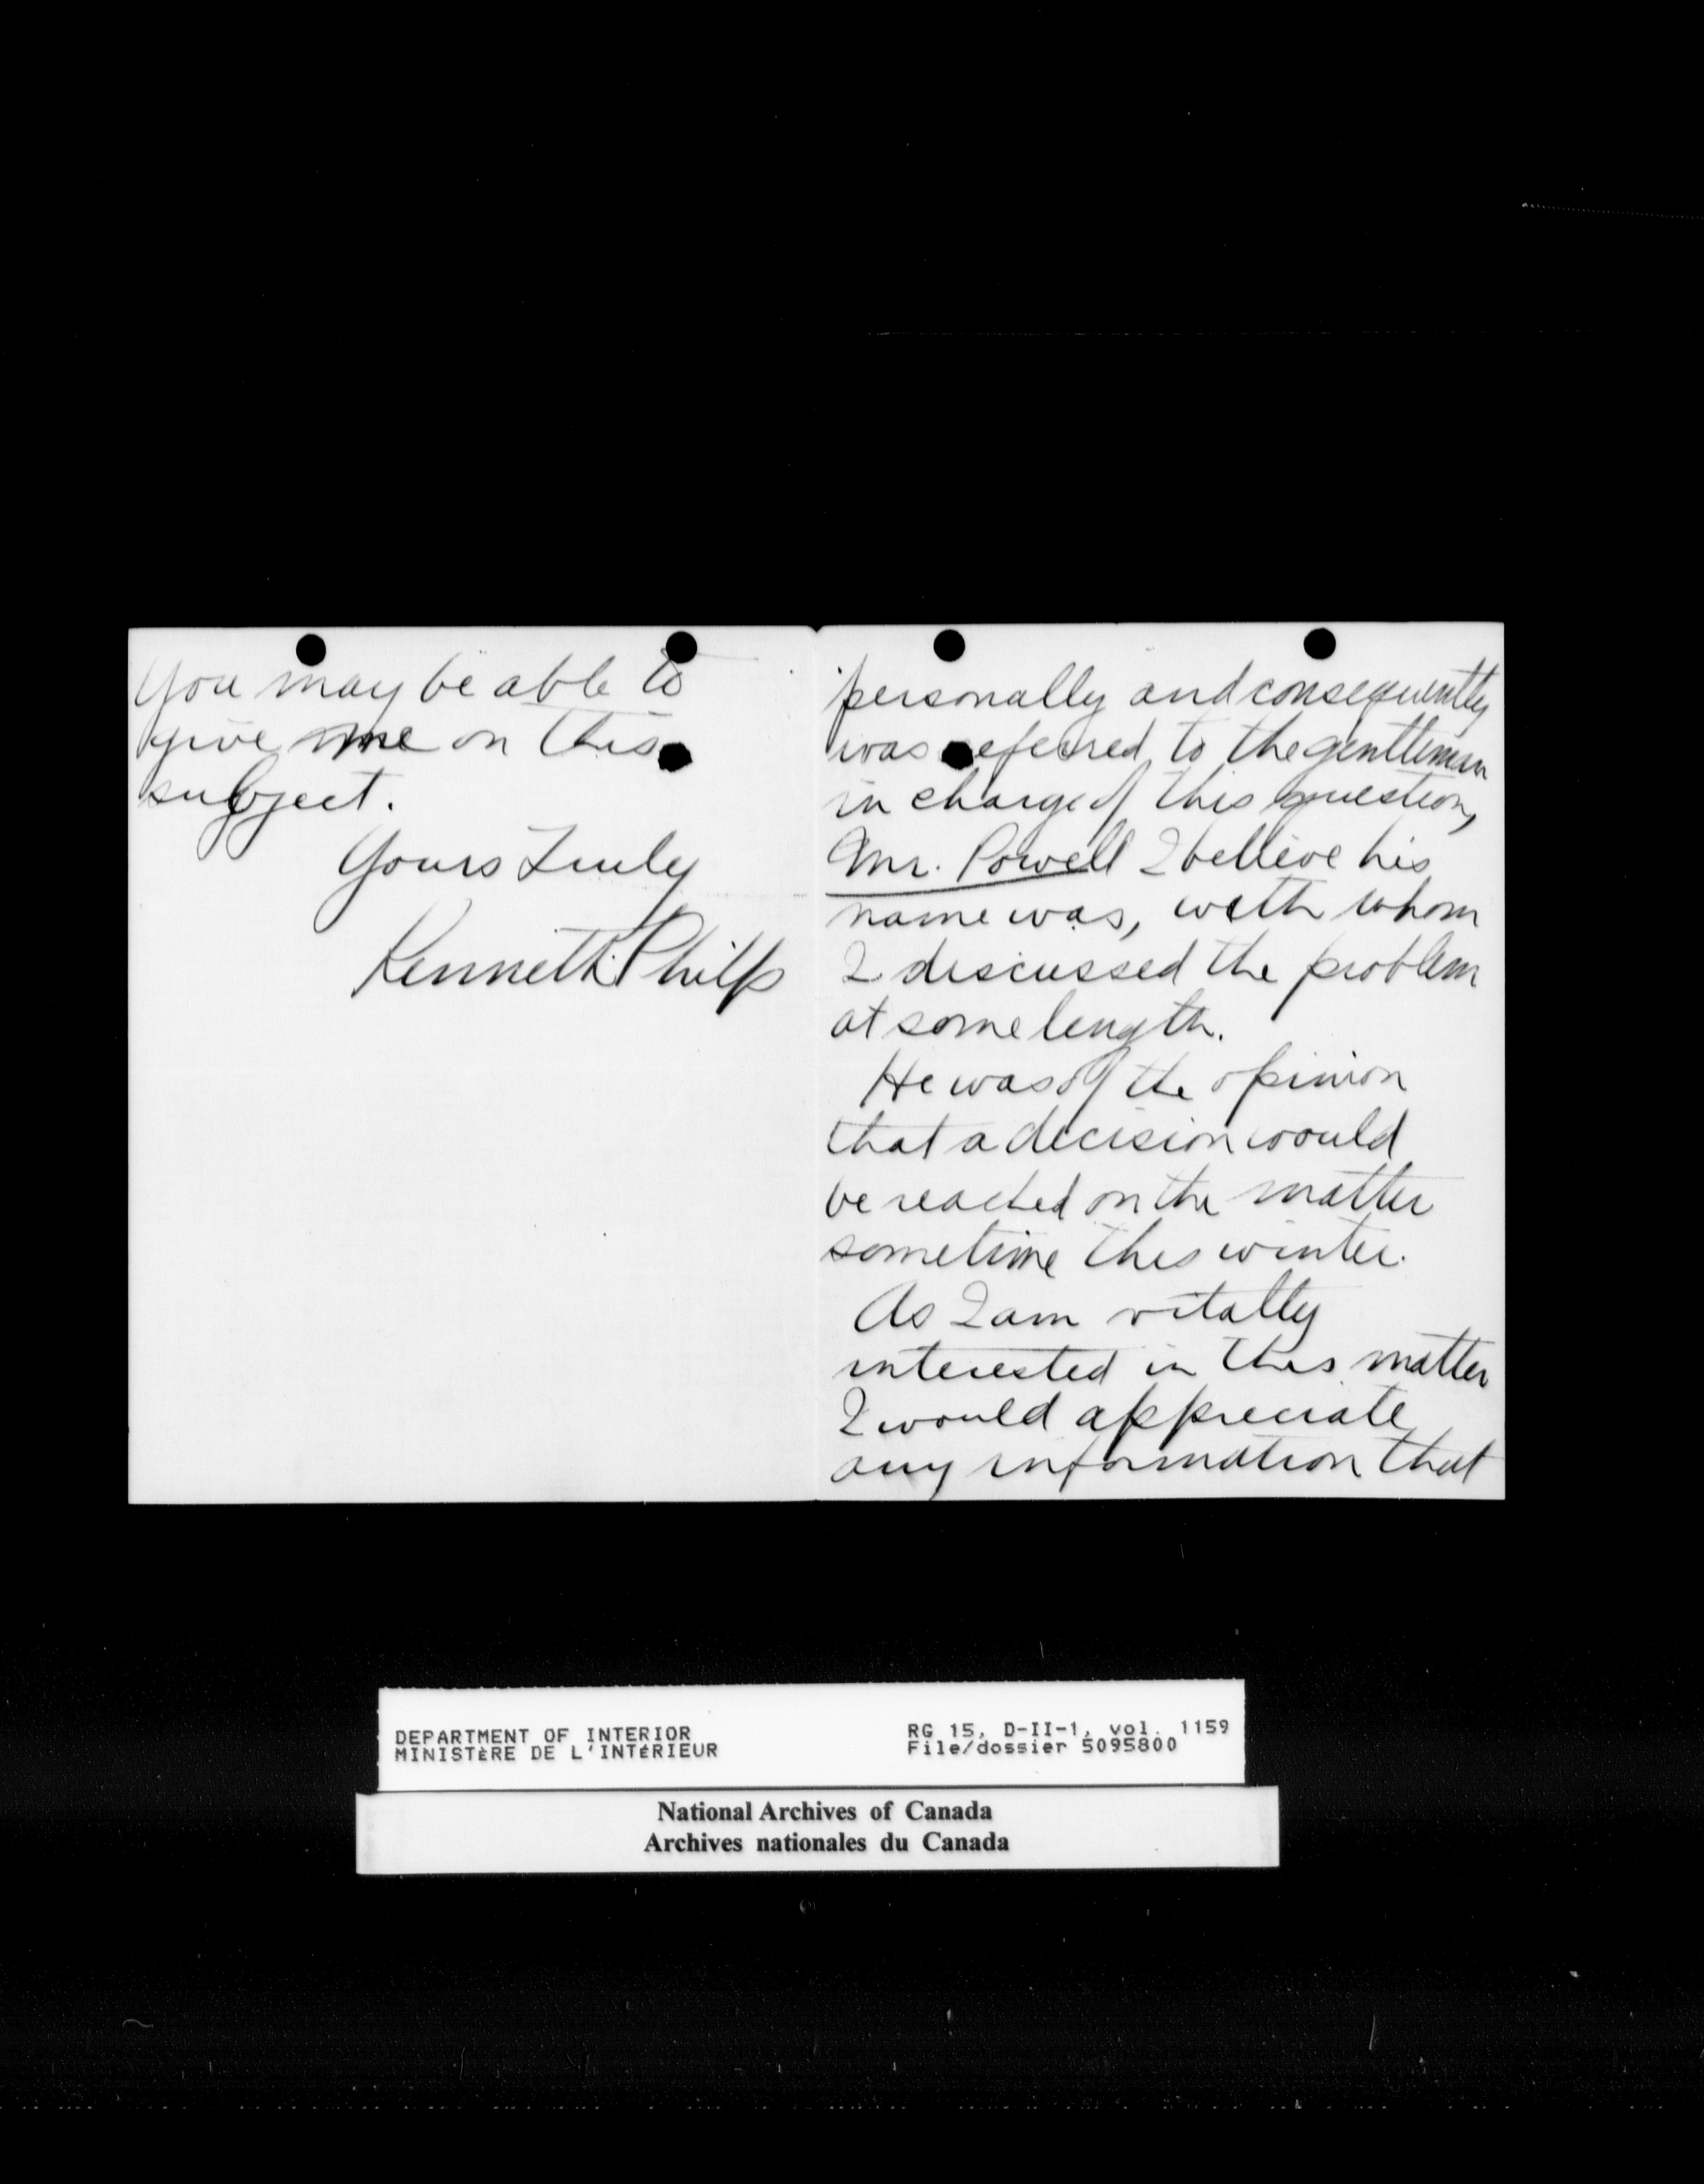 You may be able to
give me on this
subject.
Yours Truly
Kenneth Philp
personally and consequently
was referred to the gentleman
in charge of this question,
Mr. Powell I believe his
name was, with whom
I discussed the problem
at some length.
He was of the opinion
that a decision would
be reached on the matter
sometime this winter.
As I am vitally
interested in this matter
I would appreciate
any information that
DEPARTMENT OF INTERIOR
MINISTÈRE DE L'INTÉRIEUR
RG 15, D-II-1, vol. 1159
File/dossier 5095800
National Archives of Canada
Archives nationales du Canada